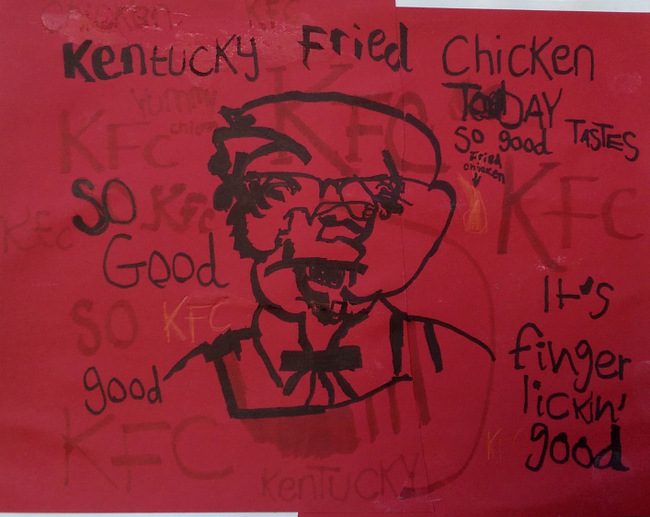 Chicken KFC
Kentucky Fried Chicken
Yummy
Chicken
KFC
KFC
TODAY
TASTES
So good
Fried
chicken
SO
Good
KFC
KFC
KFC
SO
good
KFC
It's
finger
lickin'
good
KFC
K
Kentucky